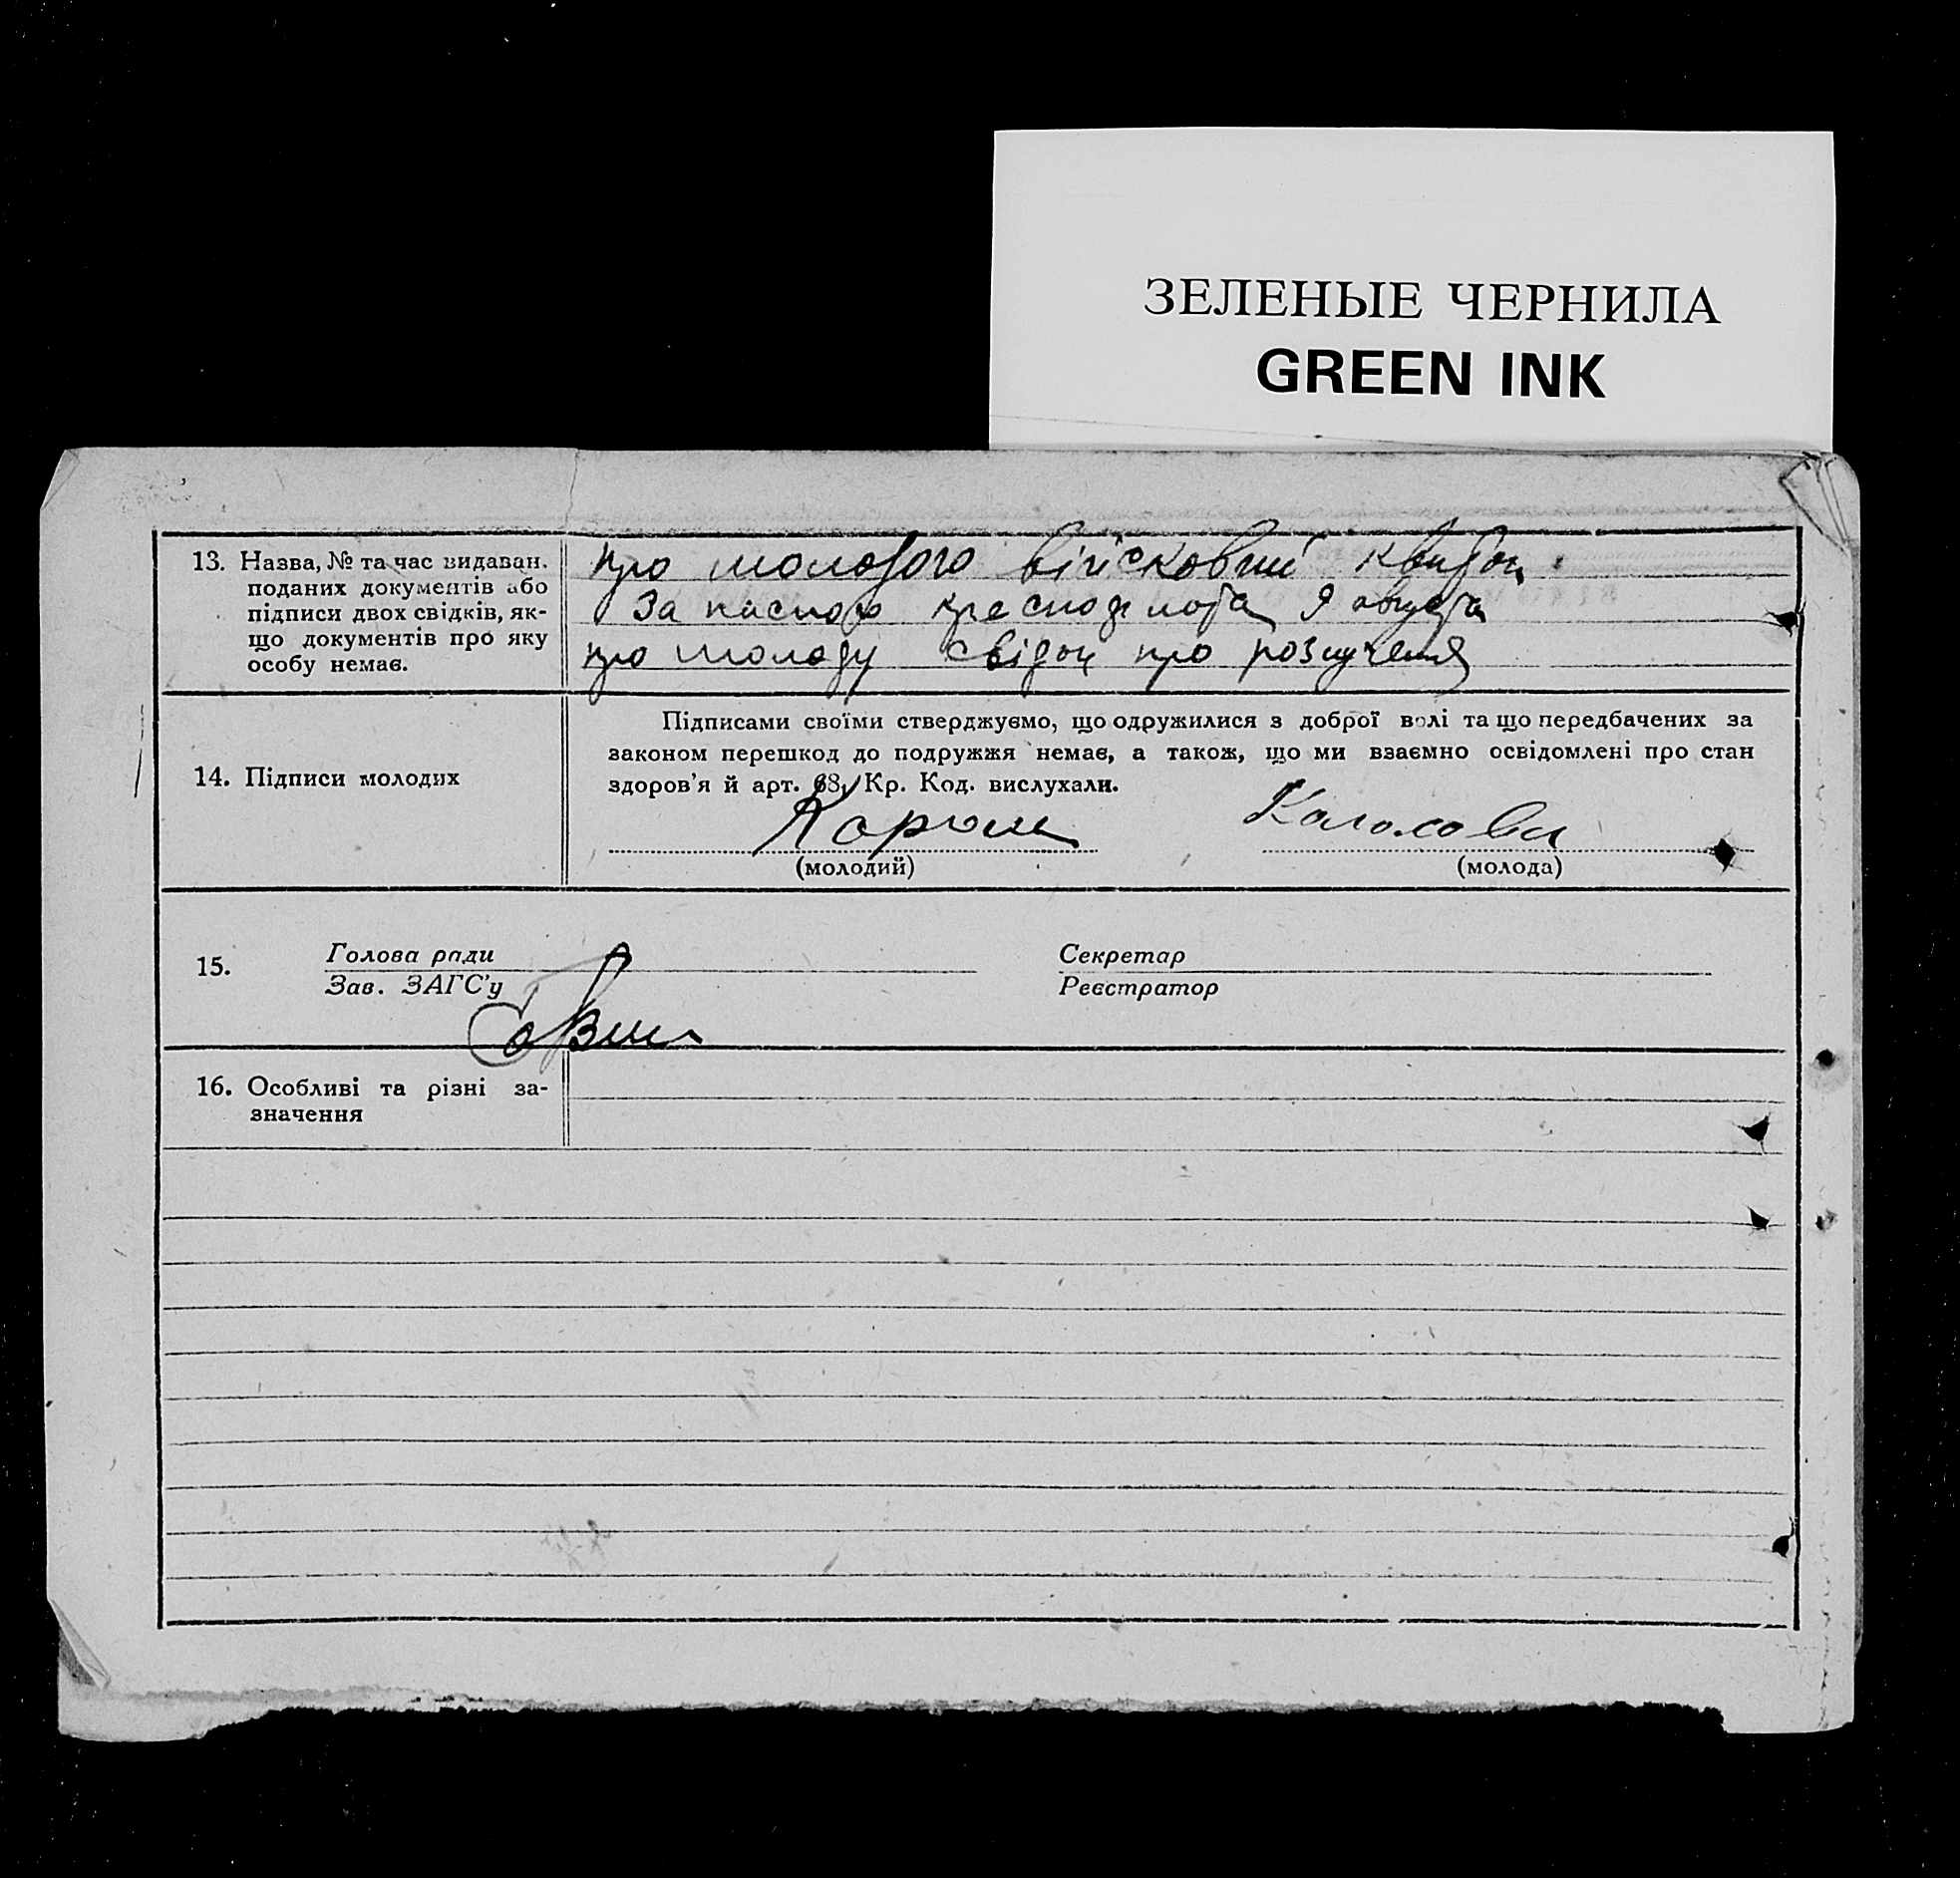 ЗЕЛЕНЫЕ ЧЕРНИЛА
GREEN INK
13. Назва, № та час видаван.
поданих документів або
підписи двох свідків, як-
що документів про яку
особу немає.
про молодого військовий квиток
За
про молоду свідоц про розлучення
14. Підписи молодих
Підписами своїми стверджуємо, що одружилися з доброї волі та що передбачених за
законом перешкод до подружжя немає, а також, що ми взаємно освідомлені про стан
здоров'я й арт. 68, Кр. Код. вислухали.
(молодий)
(молода)
15.
Голова ради
Зав. ЗАГС'у
Секретар
Реєстратор
16. Особливі та різні за-
значення